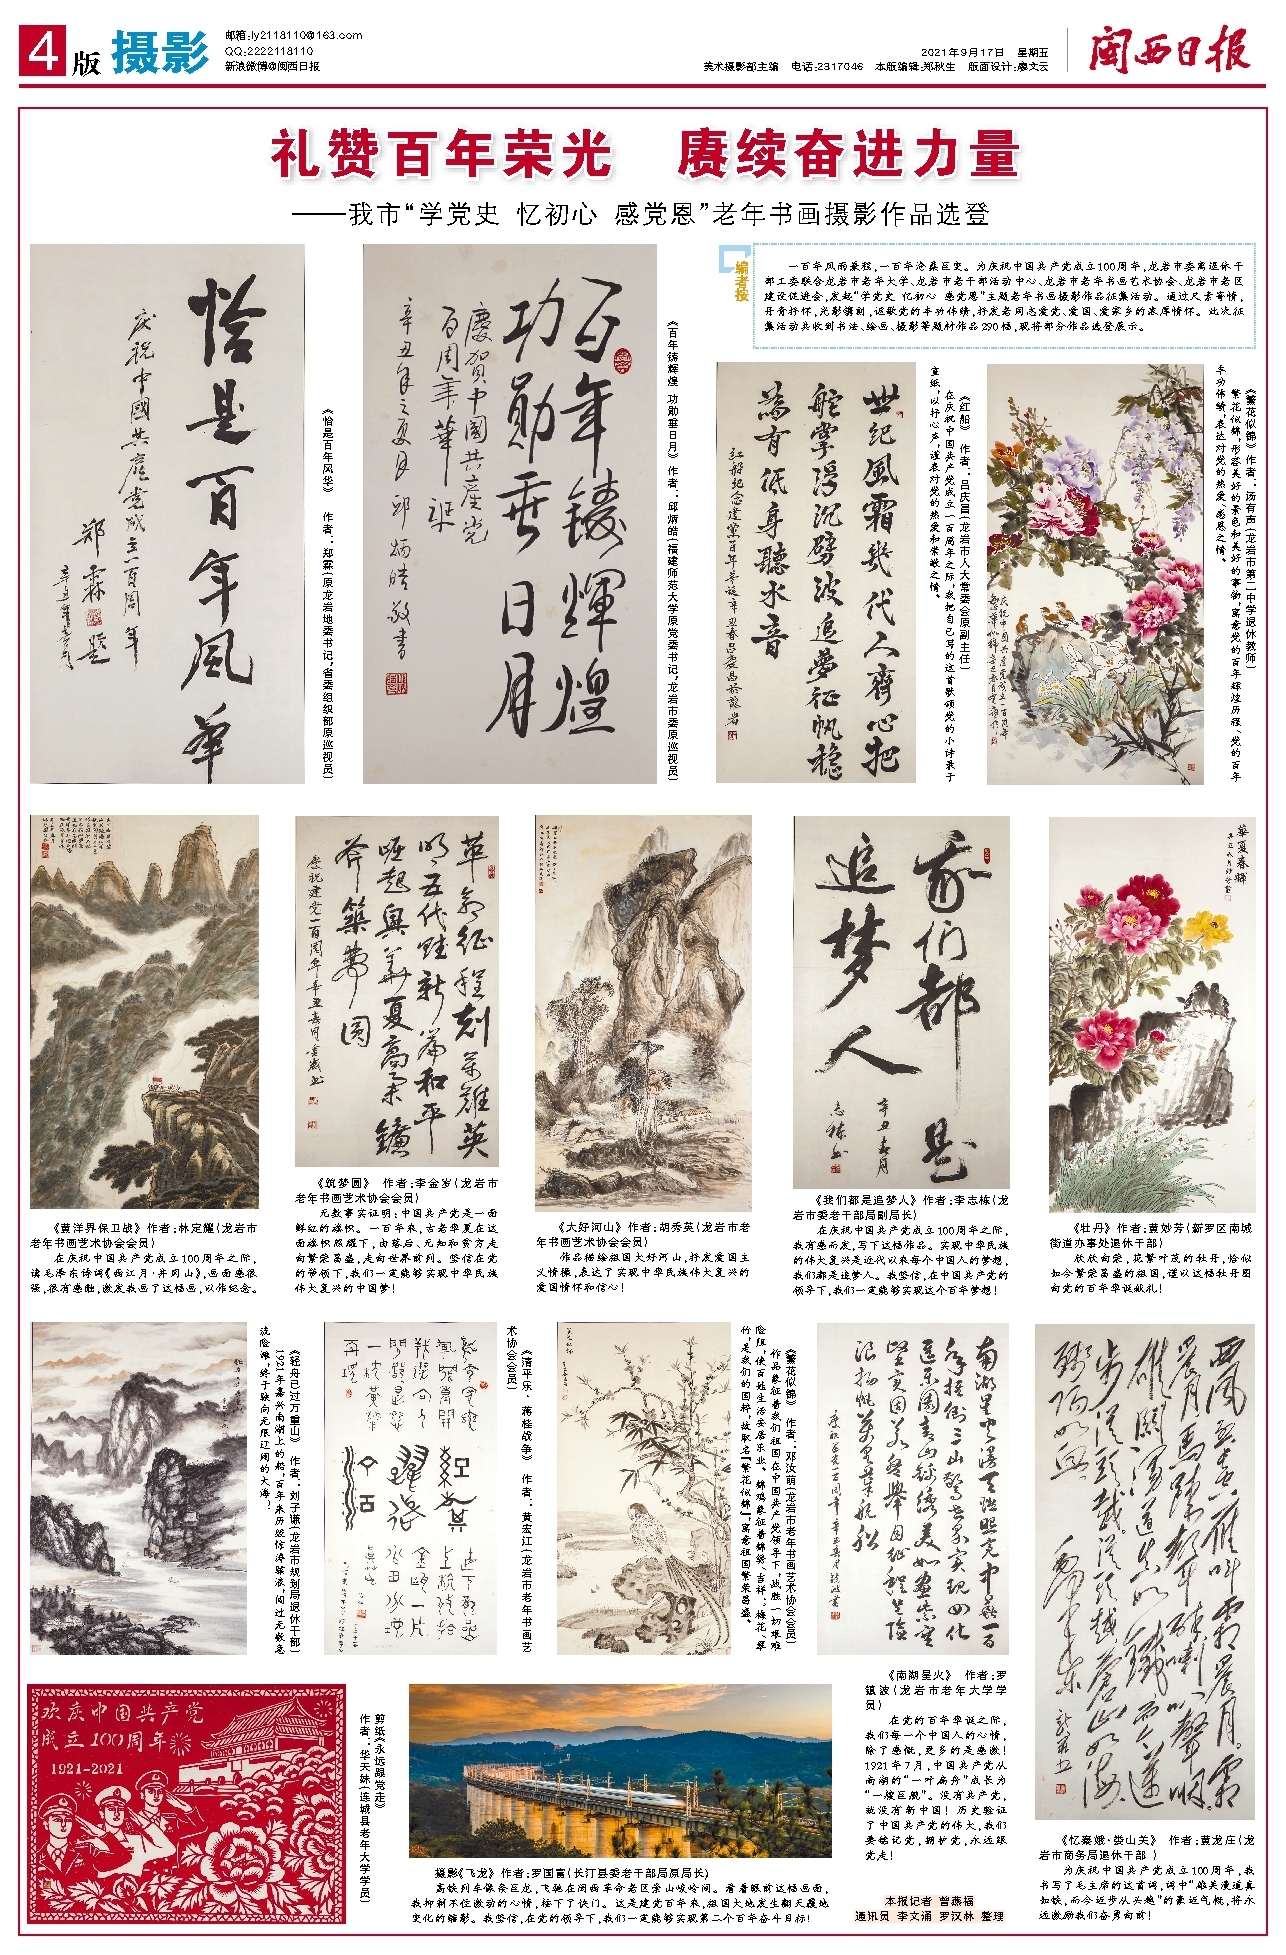 4版 摄影
邮箱:ly2118110@163.com
QQ:2222118110
新浪微博@闽西日报
2021年9月17日 星期五
美术摄影部主编 电话:2317046 本版编辑:郑秋生 版面设计:廖文云
闽西日报
礼赞百年荣光 赓续奋进力量
——我市“学党史 忆初心 感党恩”老年书画摄影作品选登
恰是百年风华
庆祝中國共產党成立一百周年
郑霖 题
《恰是百年风华》 作者：郑霖(原龙岩地委书记,省委组织部原巡视员)
百年铸輝煌
功勛垂日月
慶贺中國共產党
百周年華诞
辛丑年之夏月 邱炳皓敬書
《百年铸辉煌 功勋垂日月》 作者：邱炳皓(福建师范大学原党委书记,龙岩市委原巡视员)
编者按
一百年风雨兼程,一百年沧桑巨变。为庆祝中国共产党成立100周年,龙岩市委离退休干
部工委联合龙岩市老年大学、龙岩市老干部活动中心、龙岩市老年书画艺术协会、龙岩市老区
建设促进会,发起“学党史 忆初心 感党恩”主题老年书画摄影作品征集活动。通过尺素寄情,
丹青抒怀,光影镌刻,讴歌党的丰功伟绩,抒发老同志爱党、爱国、爱家乡的浓厚情怀。此次征
集活动共收到书法、绘画、摄影等题材作品290幅,现将部分作品选登展示。
世纪風霜幾代人齊心把
舵掌浮沉劈波追夢征帆稳
葯有低身聽水音
《红船》 作者：吕庆昌(龙岩市人大常委会原副主任)
在庆祝中国共产党成立一百周年之际,我把自己写的这首歌颂党的小诗录于
宣纸,以抒心声,谨表对党的热爱和崇敬之情。
《繁花似锦》作者：汤有声(龙岩市第二中学退休教师)
繁花似锦,形容美好的景色和美好的事物,寓意党的百年辉煌历程、党的百年
丰功伟绩,表达对党的热爱、感恩之情。
《黄洋界保卫战》作者:林定耀(龙岩市
老年书画艺术协会会员)
在庆祝中国共产党成立100周年之际,
读毛泽东诗词《西江月·井冈山》,画面感很
强,很有感触,激发我画了这幅画,以作纪念。
革命征程刻萬難英
明五代赋新篇和平
崛起奥美夏高举鐮
斧築夢圆
《筑梦圆》 作者:李金岁(龙岩市
老年书画艺术协会会员)
无数事实证明:中国共产党是一面
鲜红的旗帜。一百年来,古老华夏在这
面旗帜照耀下,由落后、无知和贫穷走
向繁荣昌盛,走向世界前列。坚信在党
的带领下,我们一定能够实现中华民族
伟大复兴的中国梦!
《大好河山》作者:胡秀英(龙岩市老
年书画艺术协会会员)
作品描绘祖国大好河山,抒发爱国主
义情操,表达了实现中华民族伟大复兴的
爱国情怀和信心!
我们都是
追梦人
辛丑春月
志栋书
《我们都是追梦人》作者:李志栋(龙
岩市委老干部局副局长)
在庆祝中国共产党成立100周年之际,
我有感而发,写下这幅作品。实现中华民族
的伟大复兴是近代以来每个中国人的梦想,
我们都是追梦人。我坚信,在中国共产党的
领导下,我们一定能够实现这个百年梦想!
華夏春輝
《牡丹》作者:黄妙芳(新罗区南城
街道办事处退休干部)
欣欣向荣,花繁叶茂的牡丹,恰似
如今繁荣昌盛的祖国,谨以这幅牡丹图
向党的百年华诞献礼!
《轻舟已过万重山》 作者：刘子谦(龙岩市规划局退休干部)
1921年嘉兴南湖上的船,百年来历经惊涛骇浪,闯过无数急
流险滩,终于驶向无限辽阔的大海。
《清平乐·蒋桂战争》 作者：黄宏江(龙岩市老年书画艺
术协会会员)
《繁花似锦》 作者：邓汝萌(龙岩市老年书画艺术协会会员)
作品象征着我们祖国在中国共产党领导下,战胜一切艰难
险阻,使百姓生活安居乐业。锦鸡象征着锦绣、吉祥；梅花、翠
竹,是我们的国粹,故取名“繁花似锦”,寓意祖国繁荣昌盛。
《南湖星火》 作者:罗
镇波(龙岩市老年大学学
员)
在党的百年华诞之际,
我们每一个中国人的心情,
除了感慨,更多的是感激!
1921年7月,中国共产党从
南湖的“一叶扁舟”成长为
“一艘巨舰”。没有共产党,
就没有新中国!历史验证
了中国共产党的伟大,我们
要铭记党,拥护党,永远跟
党走!
西風烈長空雁叫霜晨月霜
晨月馬蹄聲碎喇叭聲咽
雄關漫道真如鐵而今邁
步從頭越從頭越蒼山如海
殘阳如血
《忆秦娥·娄山关》 作者:黄龙庄(龙
岩市商务局退休干部 )
为庆祝中国共产党成立100周年,我
书写了毛主席的这首词,词中“雄关漫道真
如铁,而今迈步从头越”的豪迈气概,将永
远激励我们奋勇向前!
欢庆中国共产党
成立100周年
1921-2021
剪纸《永远跟党走》
作者：华天妹(连城县老年大学学员)
摄影《飞龙》作者:罗国富(长汀县委老干部局原局长)
高铁列车像条巨龙,飞驰在闽西革命老区崇山峻岭间。看着眼前这幅画面,
我抑制不住激动的心情,按下了快门。这是建党百年来,祖国大地发生翻天覆地
变化的缩影。我坚信,在党的领导下,我们一定能够实现第二个百年奋斗目标!
本报记者 曾燕福
通讯员 李文涌 罗汉林 整理